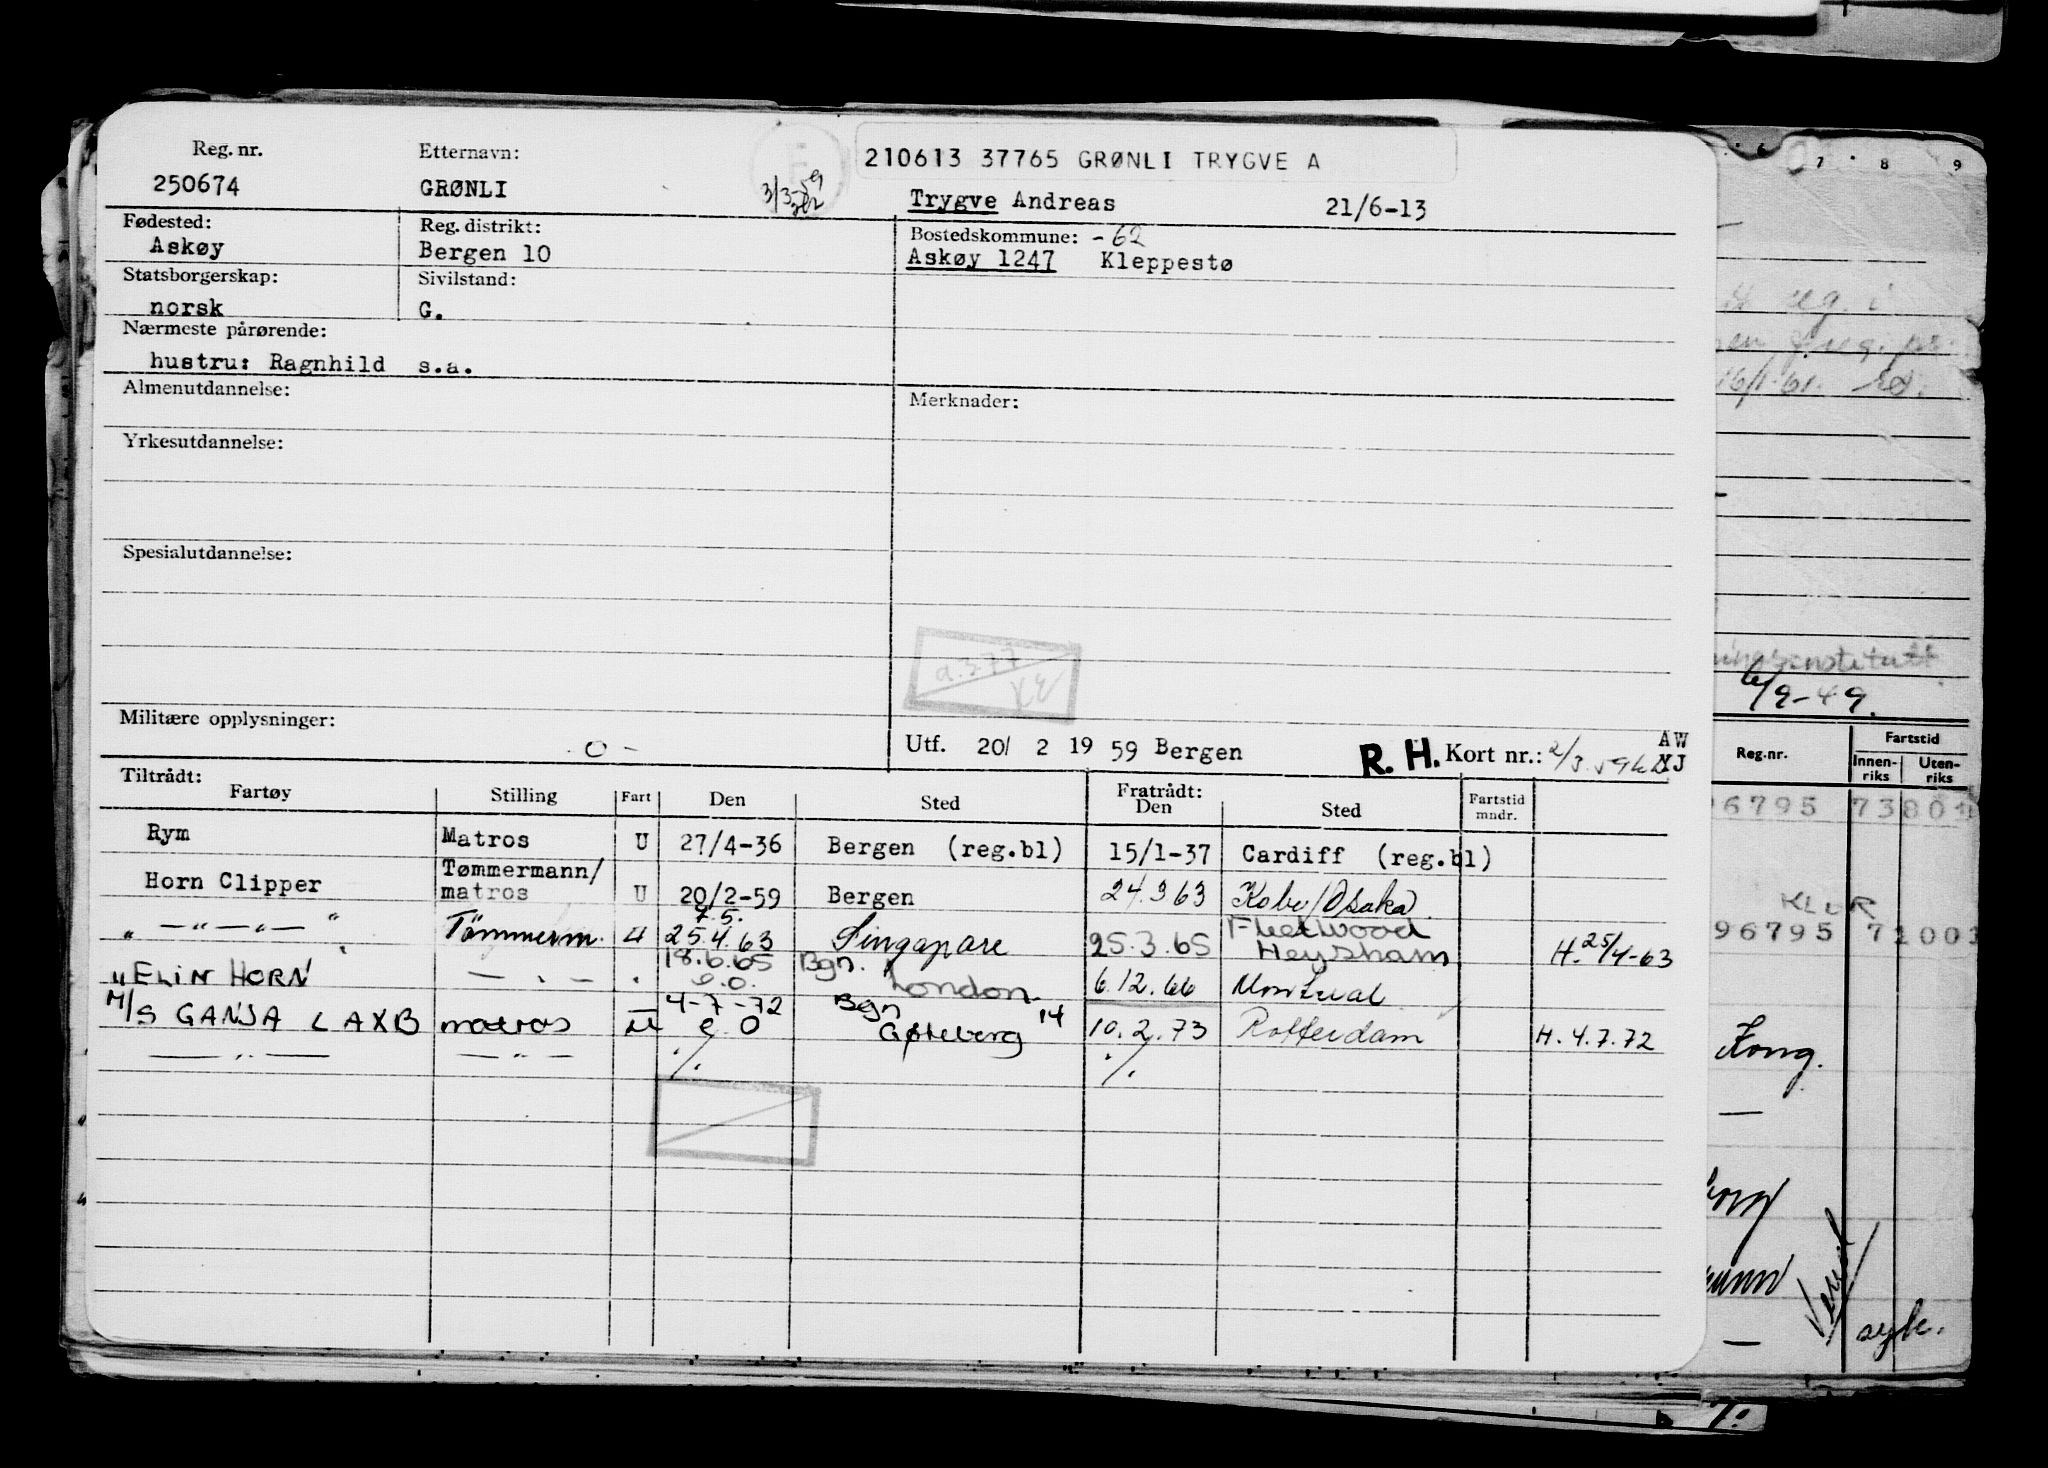 Reg. nr. Etternavn: 210613 37765 GRØNLI TRYGVE A
250674 GRØNLI Trygve Andreas 21/6-13
Fødested: Reg. distrikt: Bostedskommune: -62
Askøy Bergen 10 Askøy 1247 Kleppestø
Statsborgerskap: Sivilstand:
norsk G.
Nærmeste pårørende:
hustru: Ragnhild s.a.
Almenutdannelse: Merknader:
Yrkesutdannelse:
Spesialutdannelse:
a.377
Militære opplysninger:
-O- Utf. 20/ 2 19 59 Bergen R. H. Kort nr.: AW
Tiltrådt: Fratrådt:
Fartøy Stilling Fart Den Sted Den Sted Fartstid mndr.
Rym Matros U 27/4-36 Bergen (reg.bl) 15/1-37 Cardiff (reg.bl)
Horn Clipper Tømmermann/ matros U 20/2-59 Bergen 24.3.63 Kobe/Osaka
7.5.
" — " — " — " Tømmerm. U 25.4.63 Singapore 25.3.65 Fleetwood Heysham H. 25/4-63
18.6.65 Bgn.
" ELIN HORN — " — e.o. London 6.12.66 Montreal
4-7-72 Bgn
M/S GANJA LAXB matros U e.o Gøteborg 14 10.2.73 Rotterdam H. 4.7.72
— " — — " — ./. ./.
6 7 8 9
ug. i
16/1-61.
6/9-49.
Reg.nr. Fartstid
Innen- riks Uten- riks
96795 7380
96795 71003
Kong.